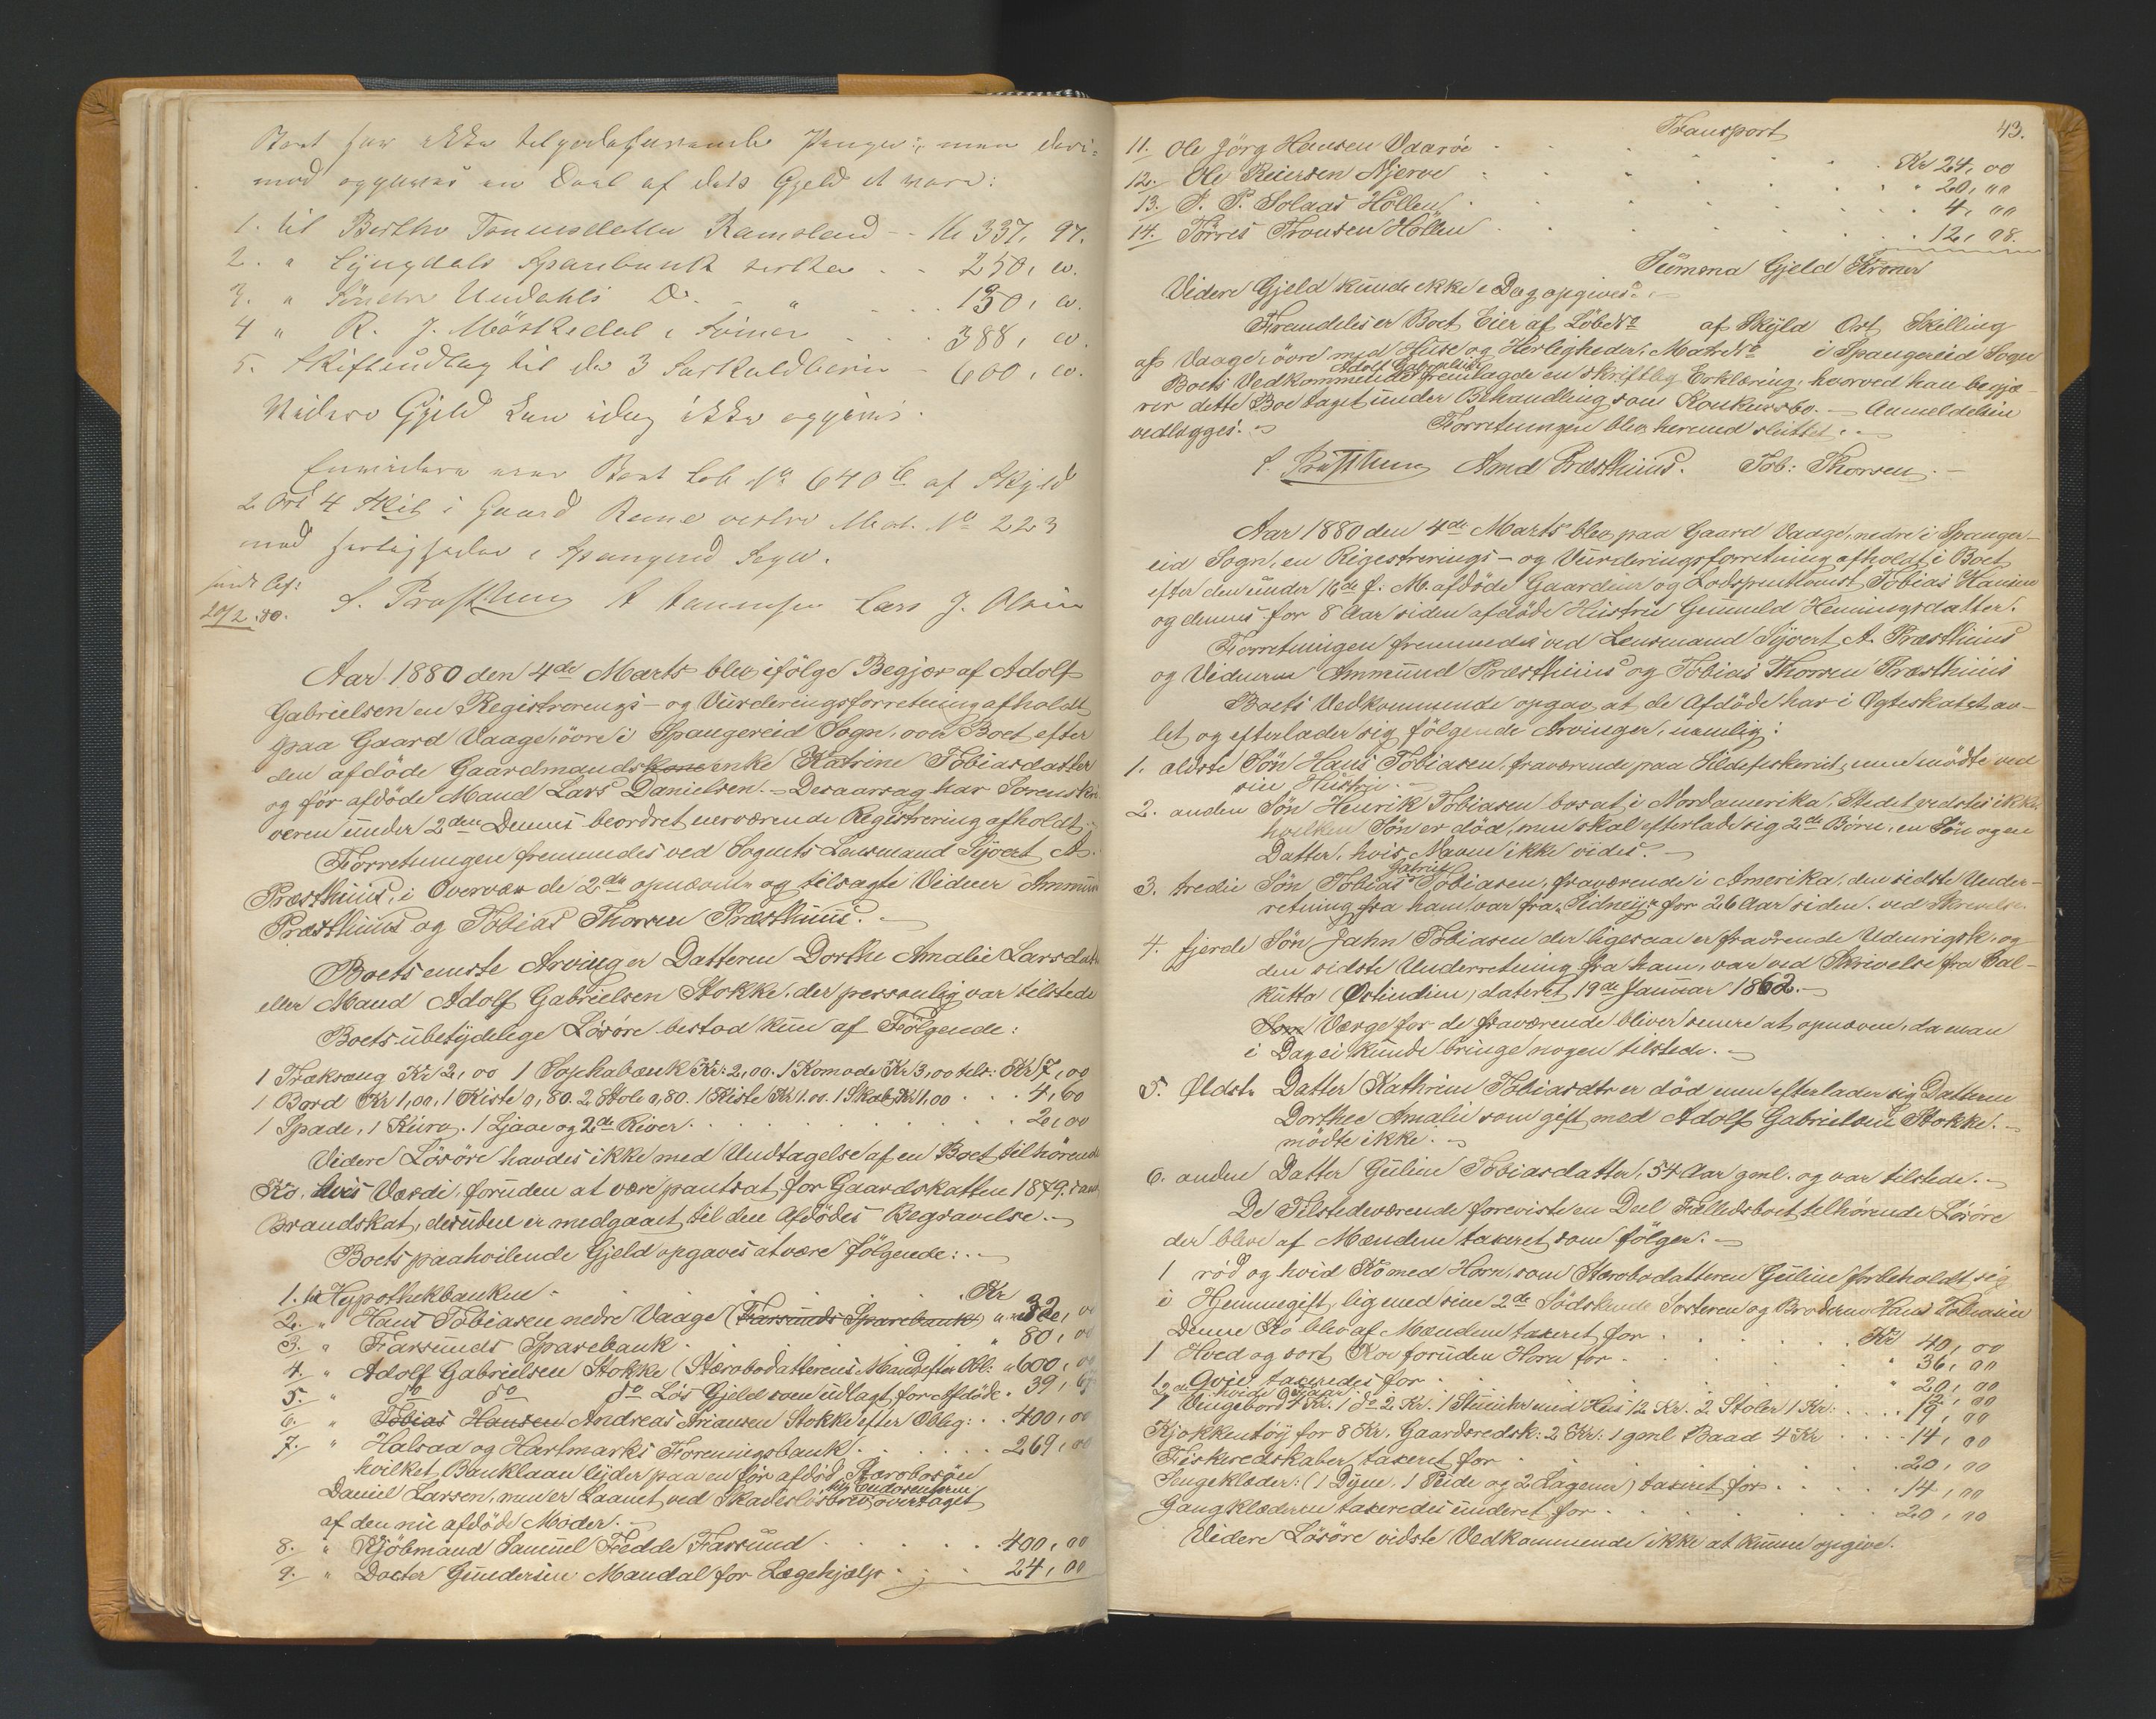 Boet har ikke tilgodehavende Penge, men deri-
mod opgives en Deel af dets Gjeld at være:
1. til Berthe Tønnesdatter Ramsland - - Kr 337, 97.
2. " Lyngdals Sparebank - - 250, "
3. " Søndre Undahls Do. - " . . . 130, "
4 " R. J. . . . . 388, "
5. Skifteudlæg til de 3 Særkuldbørn - 600, "
Videre Gjeld kan idag ikke opgives.
Endvidere eier Boet Løb No 640 b af Skyld
2 Ort 4 Skil i Gaard Rame vestre Mat. No 223
med Herligheder i Spangereid Sogn.
sendt Afs:
29/2 .80. S. Præsthuus Lars J.
Aar 1880 den 4de Marts blev ifølge Begjær af Adolf
Gabrielsen en Registrerings- og Vurderingsforretning afholdt
paa Gaard Vaage, övre i Spangereid Sogn, over Boet efter
den afdöde Gaardmandskone enke Katrine Tobiasdatter
og för afdöde Mand Lars Danielsen. - Desaarsag har Sorenskri-
veren under 2den Dennes beordret nerværende Registrering afholdt. -
Forretningen fremmedes ved Sognets Lensmand Sjvert A.
Præsthuus, i Overvær de 2de opnævnte og tilsagte Vidner Ammund
Præsthuus og Tobias Thorsen Præsthuus. -
Boets eneste Arving er Datteren Dorthe Amalie Larsdatter
eller Mand Adolf Gabrielsen Stokke, der personlig var tilstede
Boets ubetydelige Lösöre bestod kun af Følgende:
1 Træksæng Kr 2,00 1 Sophabænk Kr: 2,00. 1 Komode Kr 3,00 tils: Kr 7,00
1 Bord Kr 1,00, 1 Kiste 0,80. 2 Stole 0,80. 1 Kiste Kr 1.00. 1 Skab Kr 1,00 . . . 4,60
1 Spade, 1 Kurv. 1 Ljaae og 2de River. . . . 2,00
Videre Lösöre havdes ikke med Undtagelse af en Boet tilhörende
Ko, hvis Værdi, foruden at være pantsat for Gaardskatten 1879. samt
Brandskat, desuden er medgaaet til den Afdödes Begravelse. -
Boets paahvilende Gjeld opgaves at være følgende: . -
1. til Hypothekbanken - . . . Kr
2. " Hans Tobiasen nedre Vaage (Farsunds Sparebank) " 32, 00
3. " Farsunds Sparebank . . . " 80, 00
4. " Adolf Gabrielsen Stokke (Stærbodatterens Mand efter Obl: " 600, 00
5. " do do do Lös Gjeld som udlagt for Afdöde " 39,
6. " Tobias Hansen Andreas Ariansen Stokke efter Oblig: . . 400, 00
7. " Halsaa og Hartmarks Foreningsbank . . . 269, 00
hvilket Banklaan lyder paa en för afdöd Stærbosön
Daniel Larsen, men er Laanet ved Skadeslösbrev til Endosenterne overtaget
af den nu afdöde Moder. -
8. " Kjöbmand Samuel Fedde Farsund . . . 400, 00
9. " Docter Gundersen Mandal for Lægehjælp . . . 24, 00
Transport 43.
11. Ole Jörg Hansen Vaaröe . . . Kr 24, 00
12. Ole Reiersen Njerve . . . " 20, 00
13. P. Solaas Höllen . . . 4, 00
14. Törres Tronsen Höllen . . . 12, 08.
Summa Gjeld Kroner
Videre Gjeld kunde ekke i Dag opgives. -
Fremdeles er Boet Eier af Löbe No af Skyld Ort Skilling
af Vaage, övre med Huse og Herligheder, Matr No i Spangereid Sogn
Boets Vedkommende Adolf Gabrielsen fremlagde en skriftlig Erklæring, hvorved han begjæ-
rer dette Boe taget under Behandling som Konkursbo. - Anmeldelsen
vedlægges. - Forretningen blev hermed sluttet. -
S. Præsthuus Amd Præsthuus. Tob: Thorsen. -
Aar 1880 den 4de Marts blev paa Gaard Vaage, nedre i Spanger-
eid Sogn, en Rigestrerings- og Vurderingsforretning afholdt i Boet
efter den under 16de f: M. afdöde Gaardeier og Lodspentionist Tobias Hansen
og dennes for 8 Aar siden afdöde Hustru Gunneld Hemingsdatter.
Forretningen fremmedes ved Lensmand Sjvert A. Præsthuus
og Vidnerne Ammund Præsthuus og Tobias Thorsen Præsthuus
Boets Vedkommende opgav, at de Afdöde har i Ægteskabet av-
let og efterlader sig fölgende Arvinger, nemlig:
1. ældste Sön Hans Tobiasen, fraværende paa Sildefiskeriet, men mödte ved
sin Hustru. -
2. anden Sön Henrik Tobiasen bosat i Nordamerika, Stedet vedstes ikke
hvilken Sön er död, men skal efterlade sig 2de Börn, en Sön og en
Datter, hvis Navne ikke vides. -
3. tredie Sön Tobias Gabriel Tobiasen, fraværende i Amerika, den sidste Under-
retning fra ham var fra "Sidney" for 26 Aar siden. ved Skrivelse.
4. fjerde Sön Jahn Tobiasen der ligesaa er fraværende Udenrigsk. og
den sidste Underretning fra ham, var ved Skrivelse fra Cal-
kutta (Ostindien) dateret 19de Januar 1862. -
Som Værge for de fraværende bliver senere at opnævne, da man
i Dag ei kunde bringe nogen tilstede. -
5. Ældste Datter Kathrine Tobiasdtr er död men efterlader sig Datteren
Dorthee Amalie som gift med Adolf Gabrielsen Stokke. -
mödte ikke. -
6. anden Datter Guline Tobiasdatter, 54 Aar gml. og var tilstede. -
De Tilstedeværende foreviste en Deel Fælledsboet tilhörende Lösöre
der bleve af Mændene taxeret som fölger. -
1 röd og hvid Ko med Horn, som Stærbodatteren Guline forbeholdt sig
i Hjemmegift, lig med sine 2de Södskende Sösteren og Broderen Hans Tobiasen
Denne Ko blev af Mændene taxeret for . . . Kr 40, 00
1 Hved og sort Koe foruden Horn for . . . " 36, 00
1 Qvie taxeredes for . . . " 20, 00
2de hvide Faar . . . 12, 00
1 Vengebord 4 Kr. 1 do 2 Kr. 1 Stueuhr med Hus 12 Kr. 2 Stoler 1 Kr: . . . 19, 00
Kjøkkentöj for 8 Kr. Gaardsredsk: 2 Kr: 1 gml Baad 4 Kr . . . 14, 00
Fiskeredskaber taxeret for . . . 20, 00
Sengeklæder: (1 Dyne, 1 Pude og 2 Lagener) taxeret for . . . 14, 00
Gangklæderne taxeredes underet for . . . 20, 00
Videre Lösöre vidste Vedkommende ikke at kunne opgive.